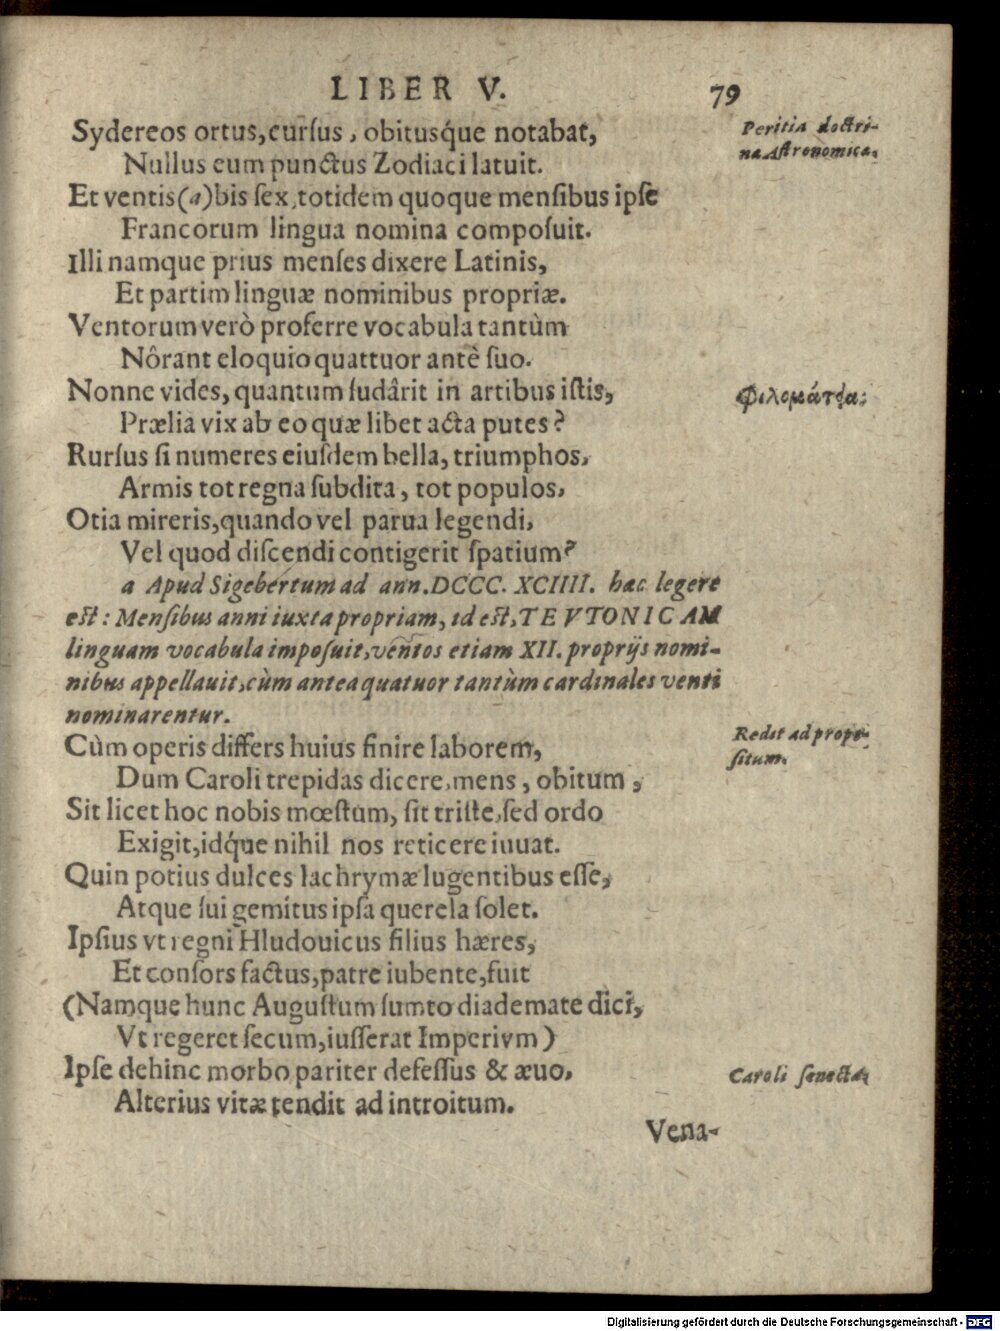 LIBER V. 79
Sydereos ortus, curſus, obitusq́ue notabat,
Peritia doctri-
na Aſtronomica.
Nullus eum punctus Zodiaci latuit.
Et ventis (a) bis ſex, totidem quoque menſibus ipſe
Francorum lingua nomina compoſuit.
Illi namque prius menſes dixere Latinis,
Et partim linguæ nominibus propriæ.
Ventorum verò proferre vocabula tantùm
Nôrant eloquio quattuor antè ſuo.
Nonne vides, quantum ſudârit in artibus iſtis,
Φιλομάτεια.
Prælia vix ab eo quæ libet acta putes?
Rurſus ſi numeres eiuſdem bella, triumphos,
Armis tot regna ſubdita, tot populos,
Otia mireris, quando vel parua legendi,
Vel quod diſcendi contigerit ſpatium?
a Apud Sigebertum ad ann. DCCC. XCIIII. hac legere
eſt: Menſibus anni iuxta propriam, id eſt, TEVTONICAM
linguam vocabula impoſuit, ventos etiam XII. proprijs nomi-
nibus appellauit, cùm antea quatuor tantùm cardinales venti
nominarentur.
Cùm operis differs huius finire laborem,
Redit ad propo-
ſitum.
Dum Caroli trepidas dicere, mens, obitum,
Sit licet hoc nobis mœſtum, ſit triſte, ſed ordo
Exigit, idq́ue nihil nos reticere iuuat.
Quin potius dulces lachrymæ lugentibus eſſe,
Atque ſui gemitus ipſa querela ſolet.
Ipſius vt regni Hludouicus filius hæres,
Et conſors factus, patre iubente, fuit
(Namque hunc Auguſtum ſumto diademate dici,
Vt regeret ſecum, iuſſerat Imperivm)
Ipſe dehinc morbo pariter defeſſus & æuo,
Caroli ſenecta.
Alterius vitæ tendit ad introitum.
Vena-
Digitalisierung gefördert durch die Deutsche Forschungsgemeinschaft - DFG